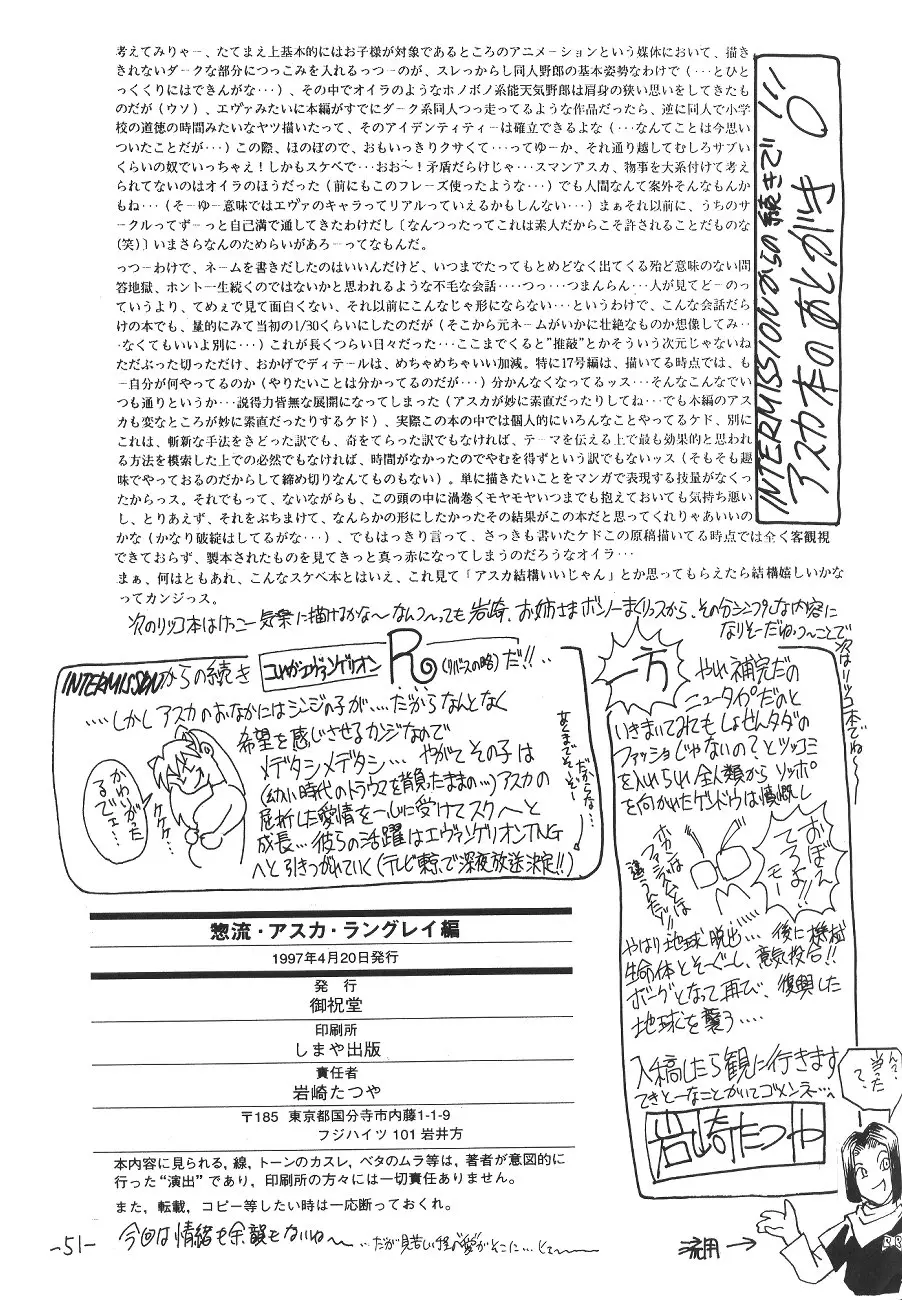 INTERMISSIONからの続きで!!
アスカ本のあとがき
考えてみりゃー、たてまえ上基本的にはお子様が対象であるところのアニメーションという媒体において、描き
きれないダークな部分につっこみを入れるっつーのが、スレっからし同人野郎の基本姿勢なわけで(・・・とひと
っくくりにはできんがな・・・)、その中でオイラのようなホノボノ系能天気野郎は肩身の狭い思いをしてきたも
のだが(ウソ)、エヴァみたいに本編がすでにダーク系同人つっ走ってるような作品だったら、逆に同人で小学
校の道徳の時間みたいなヤツ描いたって、そのアイデンティティーは確立できるよな(・・・なんてことは今思い
ついたことだが・・・)この際、ほのぼので、おもいっきりクサくて・・・ってゆーか、それ通り越してむしろサブい
くらいの奴でいっちゃえ!しかもスケベで・・・おお〜!矛盾だらけじゃ・・・スマンアスカ、物事を大系付けて考え
られてないのはオイラのほうだった(前にもこのフレーズ使ったような・・・)でも人間なんて案外そんなもんか
もね・・・(そーゆー意味ではエヴァのキャラってリアルっていえるかもしんない・・・)まぁそれ以前に、うちのサ
ークルってずーっと自己満で通してきたわけだし〔なんつったってこれは素人だからこそ許されることだものな
(笑)〕いまさらなんのためらいがあろーってなもんだ。
っつーわけで、ネームを書きだしたのはいいんだけど、いつまでたってもとめどなく出てくる殆ど意味のない問
答地獄、ホント一生続くのではないかと思われるような不毛な会話・・・・つっ・・・つまんらん・・・人が見てどーのっ
ていうより、てめぇで見て面白くない、それ以前にこんなじゃ形にならない・・・というわけで、こんな会話だら
けの本でも、量的にみて当初の1/30くらいにしたのだが(そこから元ネームがいかに壮絶なものか想像してみ・・
・なくてもいいよ別に・・・)これが長くつらい日々だった・・・ここまでくると"推敲"とかそういう次元じゃないね
ただぶった切っただけ、おかげでディテールは、めちゃめちゃいい加減。特に17号編は、描いてる時点では、も
ー自分が何やってるのか(やりたいことは分かってるのだが・・・)分かんなくなってるッス・・・そんなこんなでい
つも通りというか・・・説得力皆無な展開になってしまった(アスカが妙に素直だったりしてね・・・でも本編のアス
カも変なところが妙に素直だったりするケド)、実際この本の中では個人的にいろんなことやってるケド、別に
これは、斬新な手法をきどった訳でも、奇をてらった訳でもなければ、テーマを伝える上で最も効果的と思われ
る方法を模索した上での必然でもなければ、時間がなかったのでやむを得ずという訳でもないッス(そもそも趣
味でやっておるのだからして締め切りなんてものもない)。単に描きたいことをマンガで表現する技量がなくっ
たからっス。それでもって、ないながらも、この頭の中に渦巻くモヤモヤいつまでも抱えておいても気持ち悪い
し、とりあえず、それをぶちまけて、なんらかの形にしたかったその結果がこの本だと思ってくれりゃあいいの
かな(かなり破綻はしてるがな・・・)、でもはっきり言って、さっきも書いたケドこの原稿描いてる時点では全く客観視
できておらず、製本されたものを見てきっと真っ赤になってしまうのだろうなオイラ・・・
まぁ、何はともあれ、こんなスケベ本とはいえ、これ見て「アスカ結構いいじゃん」とか思ってもらえたら結構嬉しいかな
ってカンジっス。
次のリツコ本はけっこー気楽に描けるかな〜なんつっても岩崎、お姉さまボンノーまくりっスから、その分シンプルな内容に
なりそーだね、つーことで
次はリツコ本でね〜
INTERMISSIONからの続き
R(リバースの略)だ!!・・
・・・・しかしアスカのおなかにはシンジの子が・・・・だからなんとなく
希望を感じさせるカンジなので
メデタシメデタシ・・・やがてその子は
(幼い時代のトラウマを背負ったままの・・・)アスカの
屈折した愛情を一心に受けてスクスクと
成長・・・彼らの活躍はエヴァンゲリオンTNG
へと引きつがれていく(テレビ東京で深夜放送決定!!)
かわいがったるでェ・・・
ケケケ
一方
やれ補完だの
ニュータイプだのと
いきまいてみてもしょせんタダの
ファッショじゃないの?とツッコミ
を入れられ全人類からソッポ
を向かれたゲンドウは憤慨し
おぼえてろよ!!
モー
やはり地球脱出・・・・後に機械
生命体とそーぐーし、意気投合!!
ボーグとなって再び、復興した
地球を襲う・・・・
入稿したら観に行きます
てきとーなことかいてゴメンネ・・・
岩崎たつや
惣流・アスカ・ラングレイ編
1997年4月20日発行
発 行
御祝堂
印刷所
しまや出版
責任者
岩崎たつや
〒185 東京都国分寺市内藤1-1-9
フジハイツ 101 岩井方
本内容に見られる, 線, トーンのカスレ, ベタのムラ等は, 著者が意図的に
行った"演出"であり, 印刷所の方々には一切責任ありません。
また, 転載, コピー等したい時は一応断っておくれ。
今回は情緒も余韻もないね〜
流用→
-51-